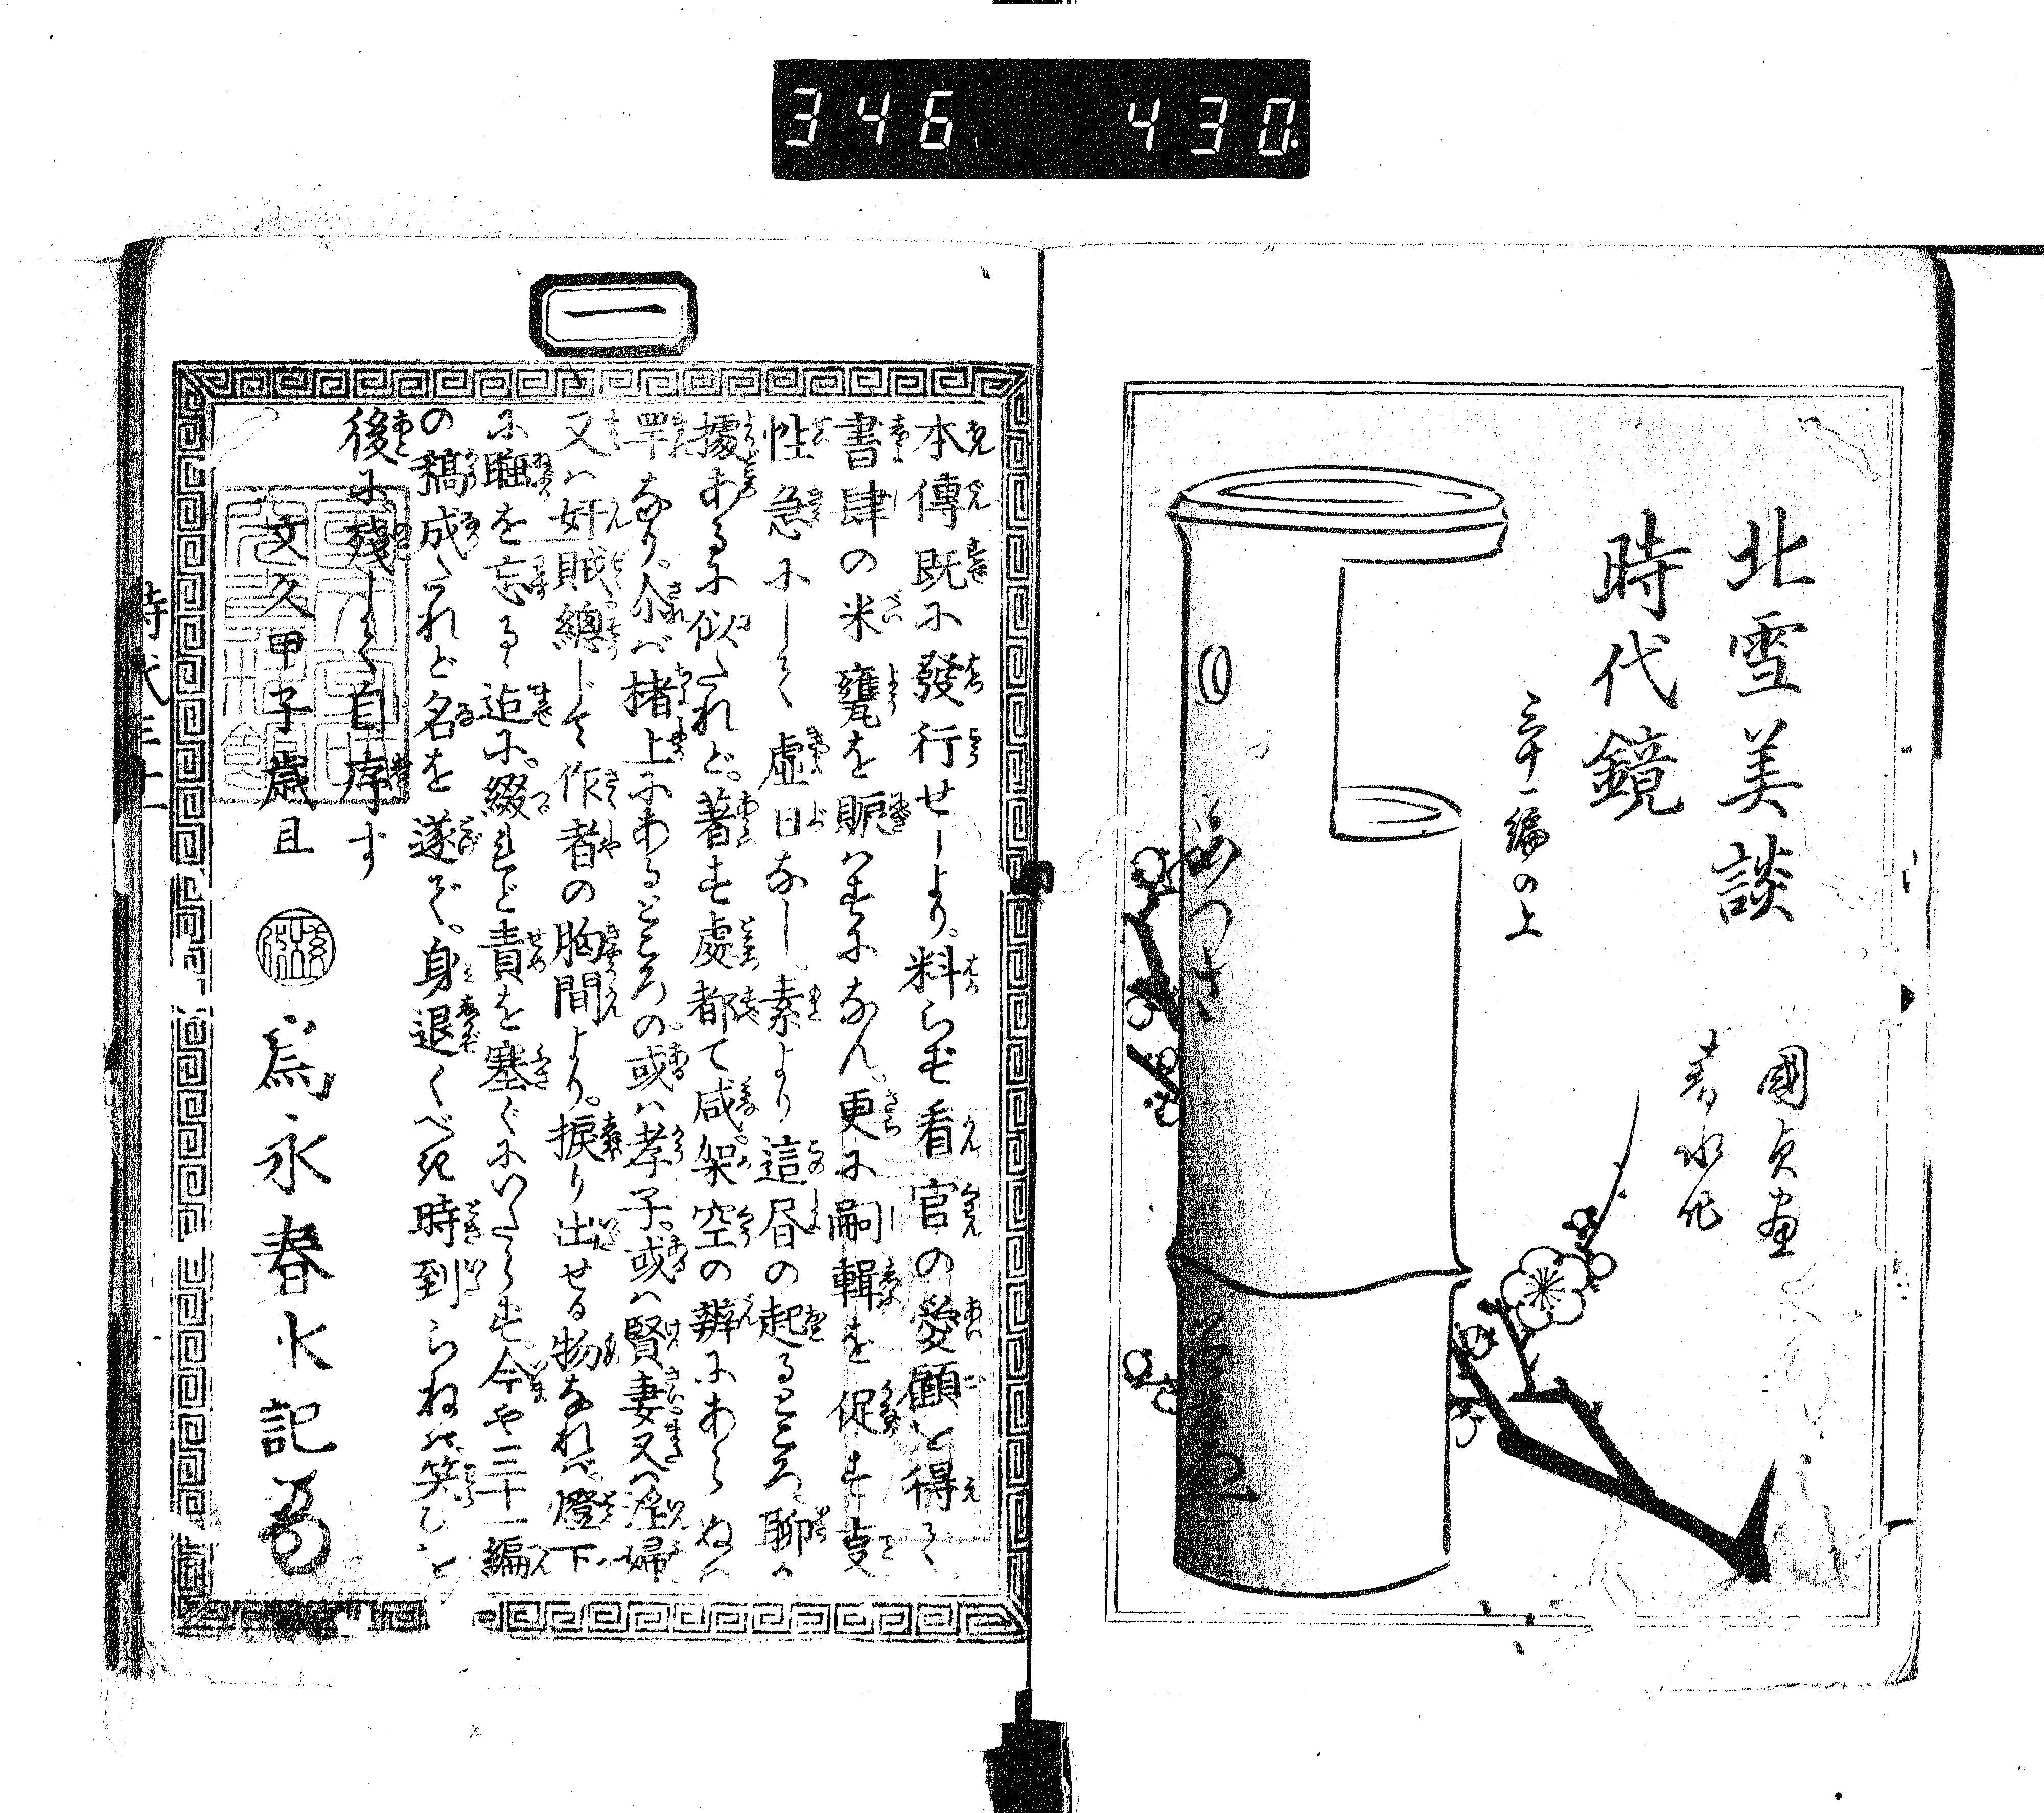 346 430
北雪美談
時代鏡
三十一編の上
國貞画
春水作
一
本傳既に發行せしより。料らず看官の愛顧を得て
書肆の米甕を賑はすになん。更に嗣輯を促す叓
性急にして虚日なし。素より這冊の起るところ聊か
據あるに似たれど。著す處都て咸架空の辨にあらぬは
罕なり。尒ば楮上にあるところの。或は孝子。或は賢妻又は淫婦
又は奸賊總じて作者の胸間より。捩り出せる物なれば。燈下
に睡を忘るゝ迠に。綴れど責を塞ぐにいたらず今や三十一編
の稿成たれど名を遂ぞ。身退くべき時到らねば笑ひを
後に殘して自序す
文久甲子歳旦
為永春水記
時代三十一